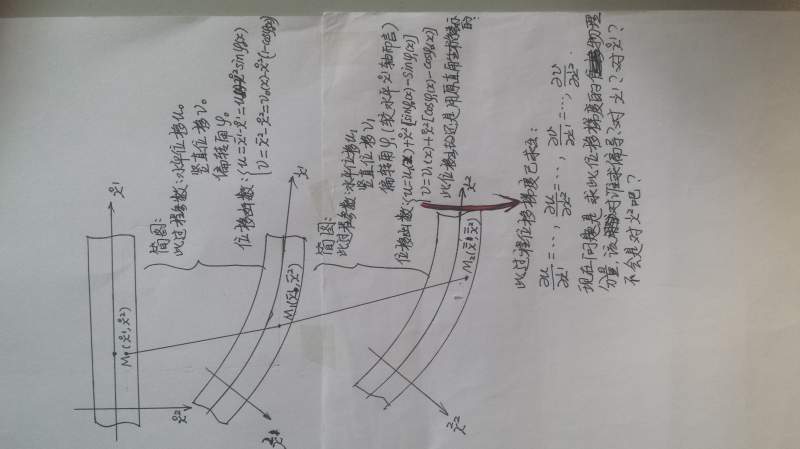 x̊²
x̊¹
M₀(x̊¹,x̊²)
简图:
此过程参数:水平位移u₀
竖直位移v₀
偏转角φ₀
位移函数:{u=x̄¹-x̊¹=
v=x̄²-x̊²=v₀(x)-x̊²(1-cosφ₀(x))
x¹
M₁(x̄¹,x̄²)
简图:
此过程参数:水平位移u₁
竖直位移v₁
偏转角φ₁(较水平x̊¹轴而言)
位移函数:{u=u₁(x)+x̊²[sinφ₀(x)-sinφ₁(x)]
v=v₁(x)+x̊²[cosφ₁(x)-cosφ₀(x)]
此位移函数还是用原直角坐标标示的:
x²
x²
此过程位移梯度已求出:
∂u/∂x̊¹=…, ∂u/∂x̊²=…, ∂v/∂x̊¹=…, ∂v/∂x̊².
现在问题是求此位移梯度的物理
分量,该对谁求偏导?对x̊¹?对x̄¹?
不会是对x²吧?